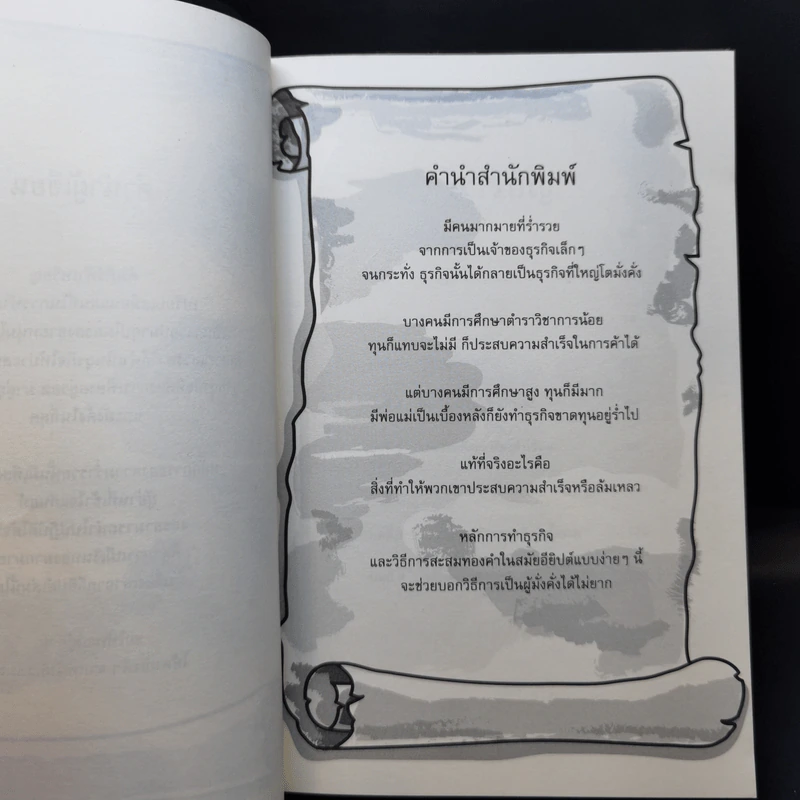 คำนำสำนักพิมพ์
มีคนมากมายที่ร่ำรวย
จากการเป็นเจ้าของธุรกิจเล็กๆ
จนกระทั่ง ธุรกิจนั้นได้กลายเป็นธุรกิจที่ใหญ่โตมั่งคั่ง
บางคนมีการศึกษาตำราวิชาการน้อย
ทุนก็แทบจะไม่มี ก็ประสบความสำเร็จในการค้าได้
แต่บางคนมีการศึกษาสูง ทุนก็มีมาก
มีพ่อแม่เป็นเบื้องหลังก็ยังทำธุรกิจขาดทุนอยู่ร่ำไป
แท้ที่จริงอะไรคือ
สิ่งที่ทำให้พวกเขาประสบความสำเร็จหรือล้มเหลว
หลักการทำธุรกิจ
และวิธีการสะสมทองคำในสมัยอียิปต์แบบง่ายๆ นี้
จะช่วยบอกวิธีการเป็นผู้มั่งคั่งได้ไม่ยาก